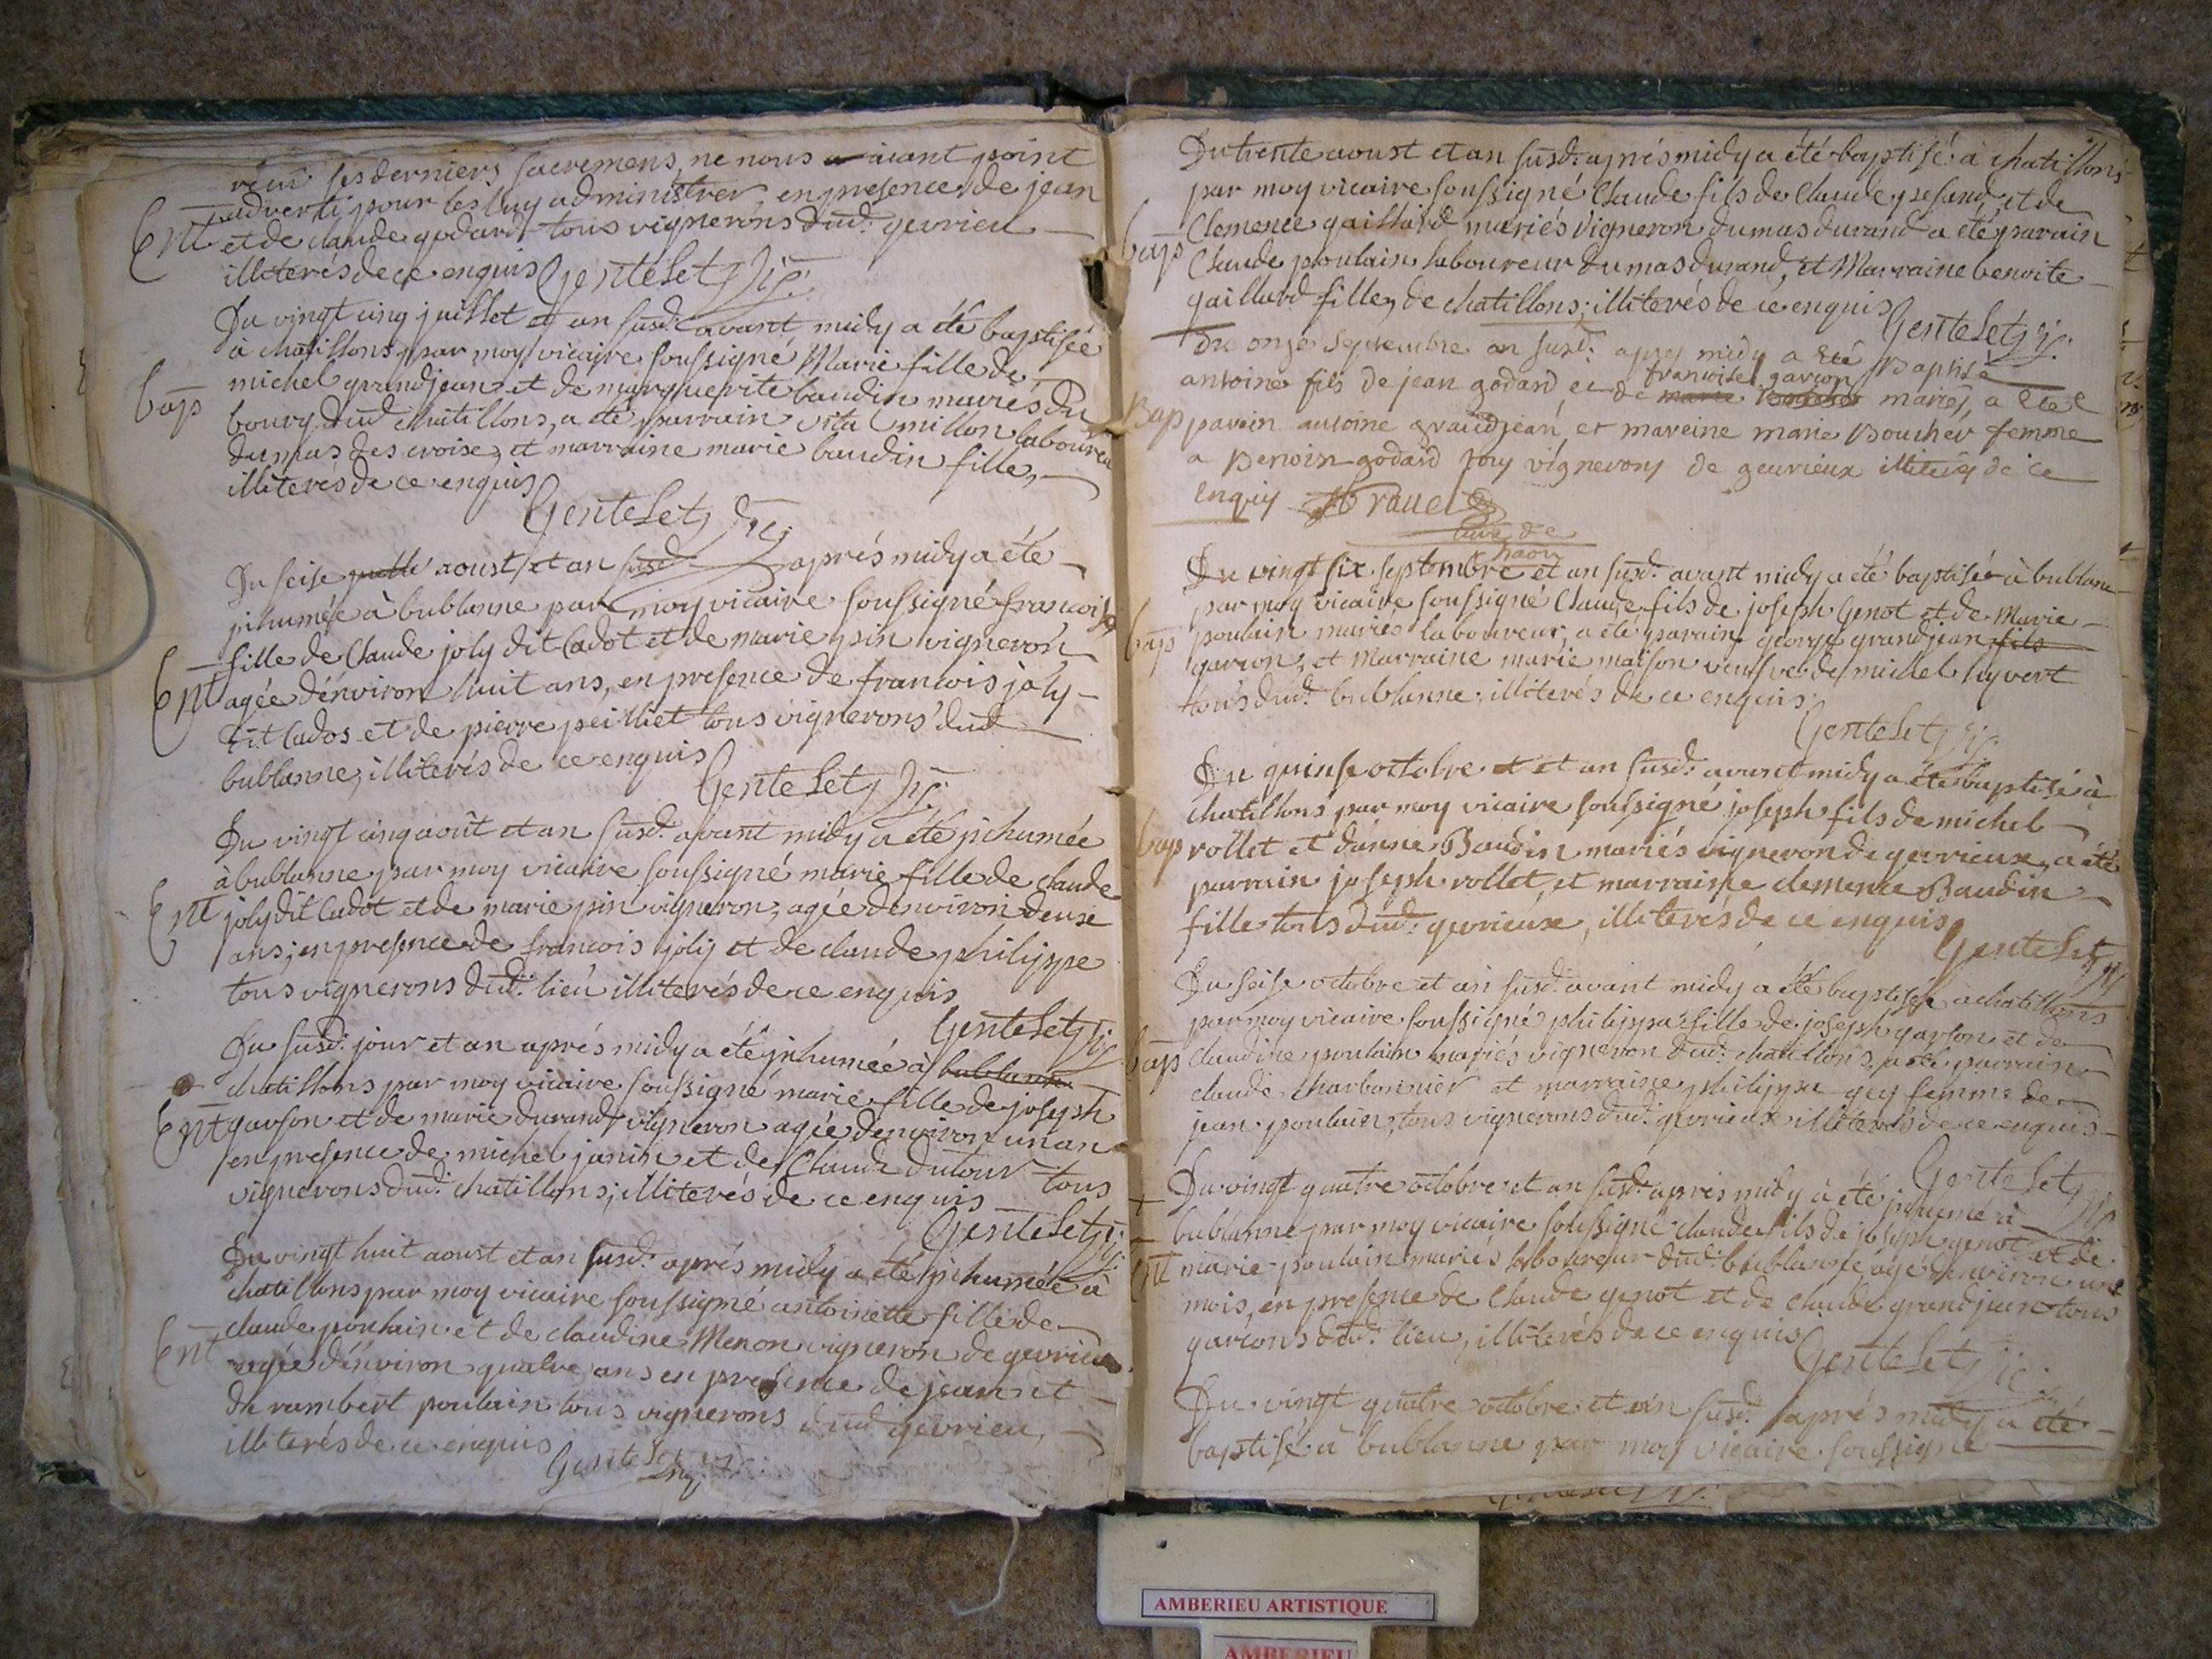 reçu ses derniers sacremens, ne nous aiant point
adverti pour les luy administrer, en presence de jean
Ent et de claude godard tous vignerons dud. gevrieu
illiterés de ce enquis Gentelet vic.
Du vingt cinq juillet et an susd. avant midy a été baptisée
à chatillons par moy vicaire soussigné Marie fille de
michel grandjean et de marguerite baudin mariés du
Bap bourg dud chatillons, a été parrain vital millon laboureur
du mas des croise, et marraine marie baudin fille,
illiterés de ce enquis
Gentelet vic.
Du seise aoust et an susd. aprés midy a été
inhumée à bublanne par moy vicaire soussigné francoise
fille de Claude joly dit Cadot et de marie pin vigneron
Ent agée d'énviron huit ans, en presence de francois joly
dit Cados et de pierre peilliet tous vignerons dud
bublanne, illiterés de ce enquis
Gentelet vic.
Du vingt cinq août et an susd. avant midy a été inhumée
à bublanne par moy vicaire soussigné marie fille de claude
Ent joly dit Cadot et de marie pin vigneron, agée denviron deuse
ans, en presence de francois joly et de claude philippe
tous vignerons dud. lieu illiterés de ce enquis
Gentelet vic.
Du susd. jour et an aprés midy a été inhumée à bublanne
chatillons par moy vicaire soussigné marie fille de joseph
Ent garson et de marie durand vigneron agée denviron un an
en presence de michel janin et de Claude dutour tous
vignerons dud. chatillons, illiterés de ce enquis
Gentelet vic.
Du vingt huit aoust et an susd. aprés midy a été inhumée à
chatillons par moy vicaire soussigné antoinette fille de
claude poulain et de claudine Menon vigneron de gevrieu
Ent agée d'énviron quatre ans en presence de jean et
de rambert poulain tous vignerons dud gevrieu,
illiterés de ce enquis
Gentelet vic.
Du trente aoust et an susd. aprés midy a été baptisé à chatillons
par moy vicaire soussigné Claude fils de Claude et de
Clemence gaillard mariés vigneron du mas durand a été parain
bap Claude poulain laboureur du mas durand, et Marraine benoite
gaillard fille, de chatillons; illiterés de ce enquis
Gentelet vic.
Du onze septembre an susd. apres midy a eté Baptisé
francoise garcon
antoine fils de jean godard et de marie mariés, a eté
Bap parein antoine grandjean, et mareine marie Boucher femme
a Benoin godard tous vignerons de gevrieux illiterés de ce
enquis
curé de
Du vingt six septembre et an susd. avant midy a été baptisé à bublane
par moy vicaire soussigné Claude fils de joseph Genot et de Marie
bap poulain mariés laboureur, a été parain george grandjean fils
garcon, et Marraine marie maison veufve de michel hyvert
tous dud. bublanne; illiterés de ce enquis
Gentelet vic.
Du quinse octobre et et an susd. avant midy a été baptisé à
chatillons par moy vicaire soussigné joseph fils de michel
bap rollet et d'annie Baudin mariés vigneron de gevrieux, a été
parrain joseph rollet, et marraine clemence Baudin
fille tous dud. gevrieux, illiterés de ce enquis
Gentelet vic.
Du seise octobre et an susd. avant midy a été baptisée a chatillons
par moy vicaire soussigné philippa fille de joseph garson et de
bap claudine poulain mariés vigneron dud. chatillons, a été parrain
claude charbonnier et marraine philippa gey femme de
jean poulain, tous vignerons dud. gevrieux illiterés de ce enquis
Gentelet vic
Du vingt quatre octobre et an susd. aprés midy a été inhumé à
bublanne par moy vicaire soussigné claude fils de joseph genot et de
Ent marie poulain mariés laboureur dud. bublanne agé denviron un
mois, en presence de Claude genot et de claude grandjean tous
garcons dud. lieu, illiterés de ce enquis
Gentelet vic.
Du vingt quatre octobre et an susd. aprés midy a été
baptisé à bublanne par moy vicaire soussigné
AMBERIEU ARTISTIQUE
AMBERIEU